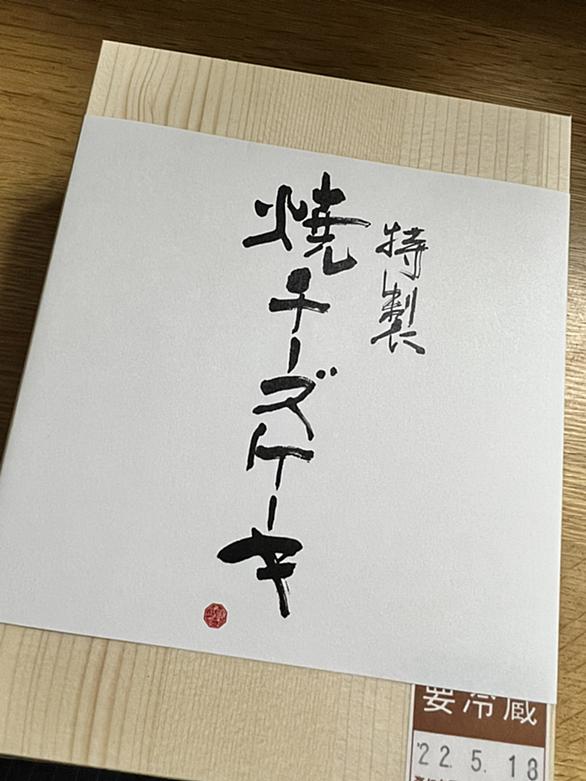 特製
焼チーズケーキ
要冷蔵
'22. 5. 18